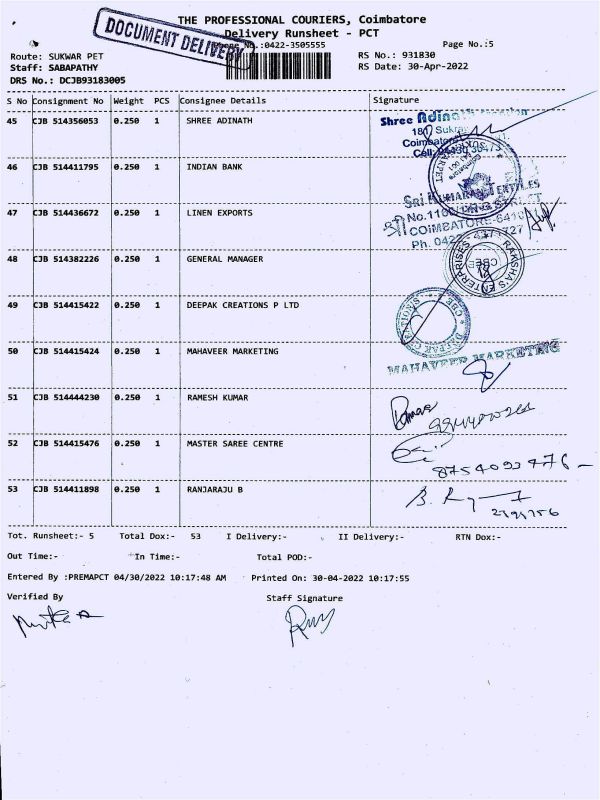 THE PROFESSIONAL COURIERS, Coimbatore
Delivery Runsheet - PCT
DOCUMENT DELIVERY
Phone No.:0422-3505555
Page No.:5
Route: SUKWAR PET
RS No.: 931830
Staff: SABAPATHY
RS Date: 30-Apr-2022
DRS No.: DCJB93183005
S No Consignment No Weight PCS Consignee Details Signature
45 CJB 514356053 0.250 1 SHREE ADINATH
Shree Adinath
Coimbatore
46 CJB 514411795 0.250 1 INDIAN BANK
47 CJB 514436672 0.250 1 LINEN EXPORTS
SRI KUMARAN TEXTILES
COIMBATORE-6410
48 CJB 514382226 0.250 1 GENERAL MANAGER
RAKSHA'S ENTERPRISES
CBE
49 CJB 514415422 0.250 1 DEEPAK CREATIONS P LTD
DEEPAK CREATIONS
CBE
50 CJB 514415424 0.250 1 MAHAVEER MARKETING
MAHAVEER MARKETING
51 CJB 514444230 0.250 1 RAMESH KUMAR
52 CJB 514415476 0.250 1 MASTER SAREE CENTRE
53 CJB 514411898 0.250 1 RANJARAJU B
Tot. Runsheet:- 5 Total Dox:- 53 I Delivery:- II Delivery:- RTN Dox:-
Out Time:- In Time:- Total POD:-
Entered By :PREMAPCT 04/30/2022 10:17:48 AM Printed On: 30-04-2022 10:17:55
Verified By Staff Signature